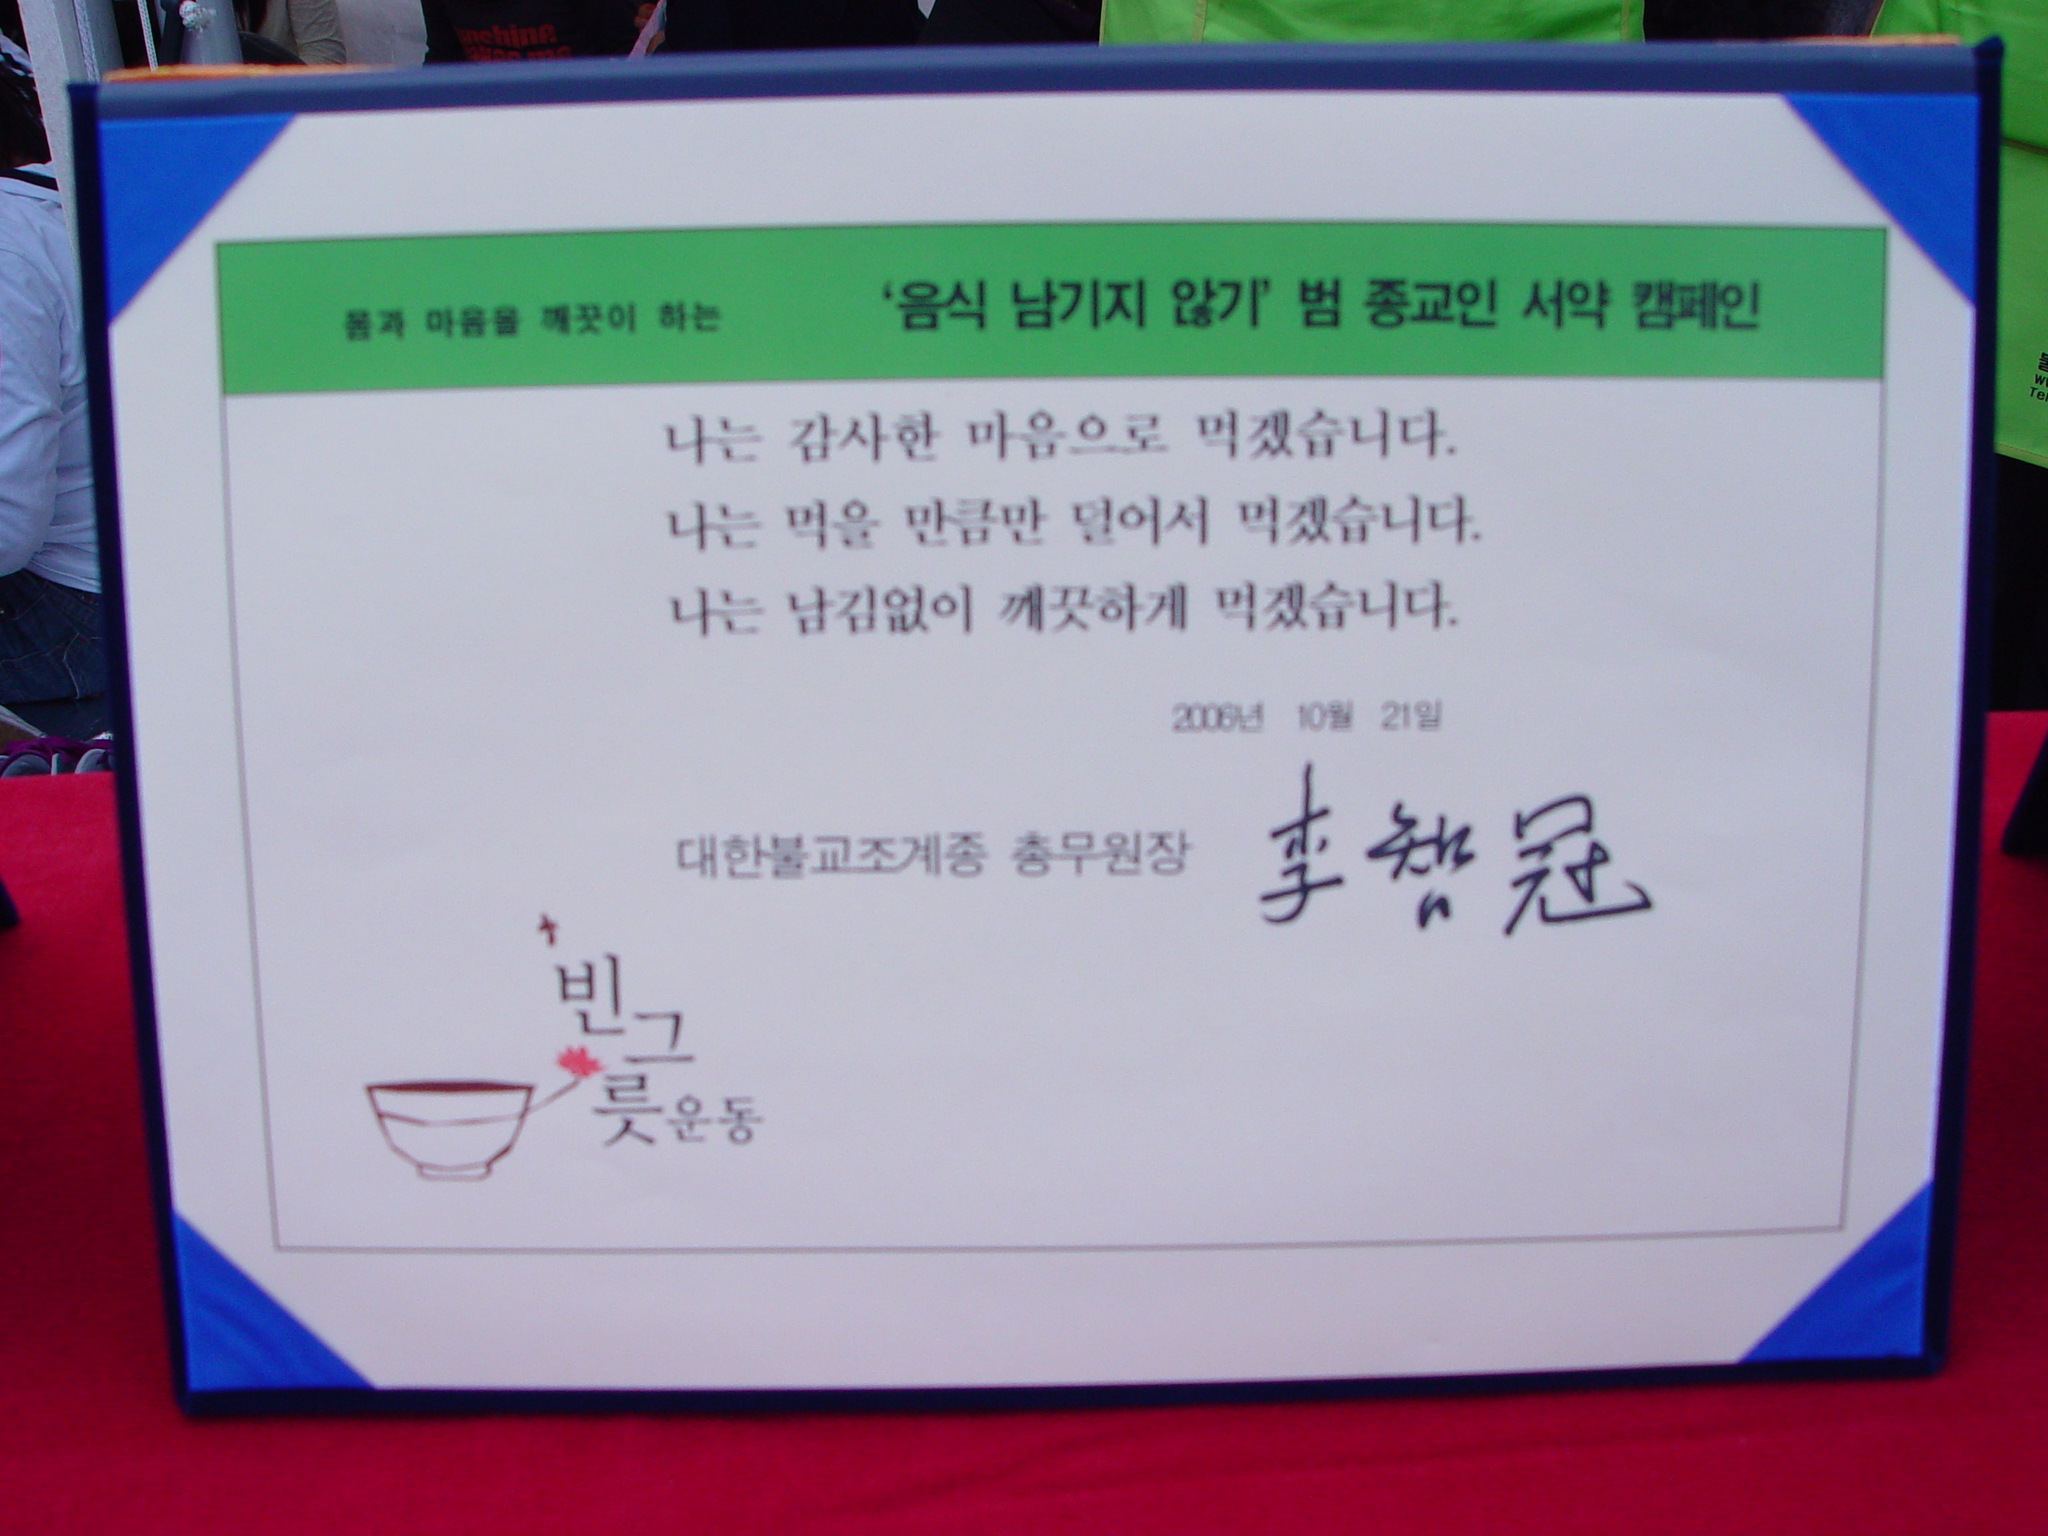 몸과 마음을 깨끗이 하는 '음식 남기지 않기' 범 종교인 서약 캠페인
나는 감사한 마음으로 먹겠습니다.
나는 먹을 만큼만 덜어서 먹겠습니다.
나는 남김없이 깨끗하게 먹겠습니다.
2006년 10월 21일
대한불교조계종 총무원장 李智冠
빈그릇운동